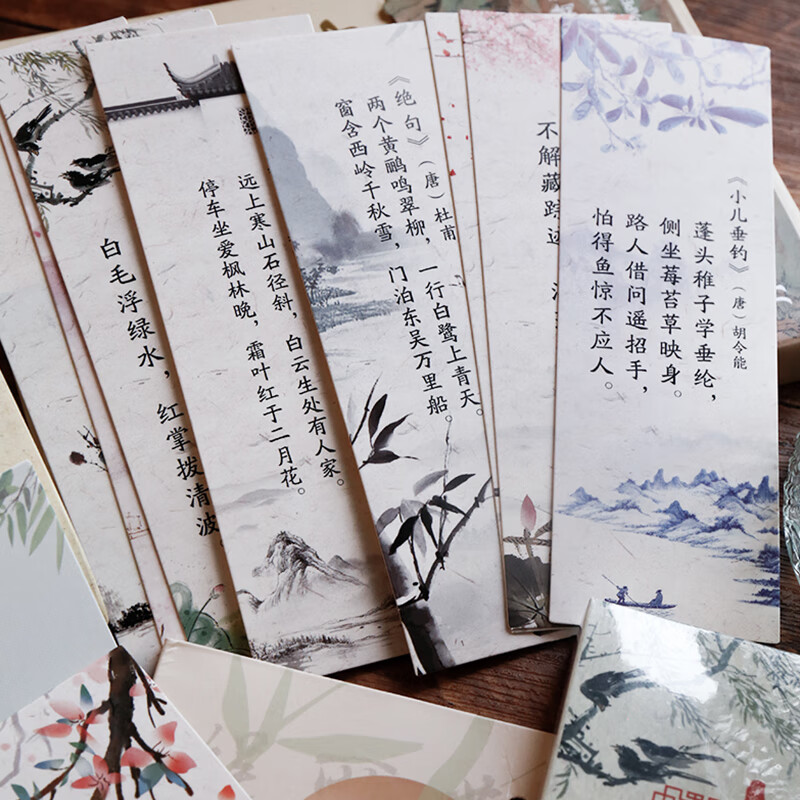 白毛浮绿水，红掌拨清波。
远上寒山石径斜，白云生处有人家。
停车坐爱枫林晚，霜叶红于二月花。
《绝句》（唐）杜甫
两个黄鹂鸣翠柳，一行白鹭上青天。
窗含西岭千秋雪，门泊东吴万里船。
不解藏踪
《小儿垂钓》（唐）胡令能
蓬头稚子学垂纶，
侧坐莓苔草映身。
路人借问遥招手，
怕得鱼惊不应人。